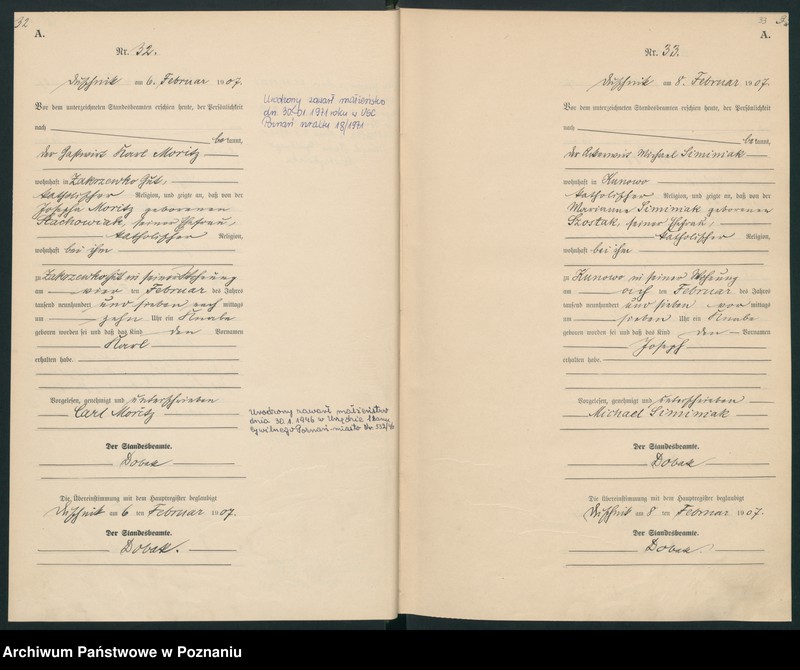 32
A.
Nr. 32.
Duschnik am 6. Februar 1907.
Vor dem unterzeichneten Standesbeamten erschien heute, der Persönlichkeit
nach
bekannt,
der Gastwirt Karl Moritz
wohnhaft in Zakrzewko Gut,
katholischer Religion, und zeigte an, daß von der
Josepha Moritz geborenen
Stachowiak, seiner Ehefrau,
katholischer Religion,
wohnhaft bei ihm
zu Zakrzewko Gut in seiner Wohnung
am vier ten Februar des Jahres
tausend neunhundert und sieben nach mittags
um zehn Uhr ein Knabe
geboren worden sei und daß das Kind den Vornamen
Karl
erhalten habe.
Vorgelesen, genehmigt und unterschrieben
Carl Moritz
Der Standesbeamte.
Dobak
Die Übereinstimmung mit dem Hauptregister beglaubigt
Duschnik am 6 ten Februar 1907.
Der Standesbeamte.
Dobak.
Urodzony zawarł małżeństwo
dn. 30-01 1971 roku w USC
Poznań nr aktu 18/1971
Urodzony zawarł małżeństwo
dnia 30.1.1946 w Urzędzie Stanu
Cywilnego Poznań-miasto Nr.
33
A.
Nr. 33.
Duschnik am 8. Februar 1907.
Vor dem unterzeichneten Standesbeamten erschien heute, der Persönlichkeit
nach
bekannt,
der Ackerwirt Michael Siminiak
wohnhaft in Kunowo
katholischer Religion, und zeigte an, daß von der
Marianna Siminiak geborenen
Szostak, seiner Ehefrau,
katholischer Religion,
wohnhaft bei ihm
zu Kunowo in seiner Wohnung
am acht ten Februar des Jahres
tausend neunhundert und sieben vor mittags
um sieben Uhr ein Knabe
geboren worden sei und daß das Kind den Vornamen
Joseph
erhalten habe.
Vorgelesen, genehmigt und unterschrieben
Michael Siminiak
Der Standesbeamte.
Dobak
Die Übereinstimmung mit dem Hauptregister beglaubigt
Duschnik am 8 ten Februar 1907.
Der Standesbeamte.
Dobak
Archiwum Państwowe w Poznaniu